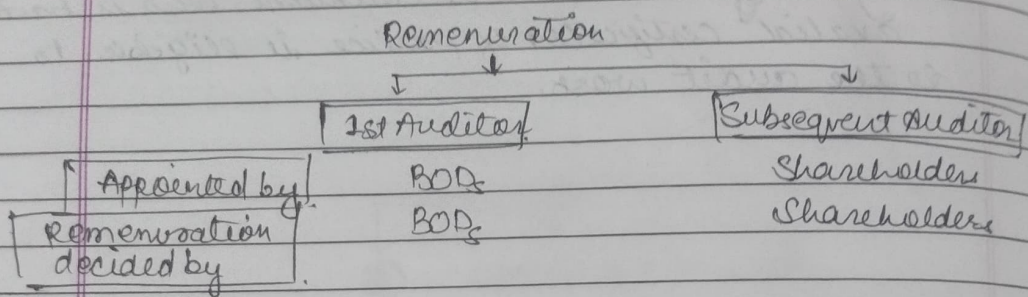 Remenuration
1st Auditor
Subsequent Auditor
Appointed by
BODs
Shareholders
Remenuration decided by
BODs
Shareholders